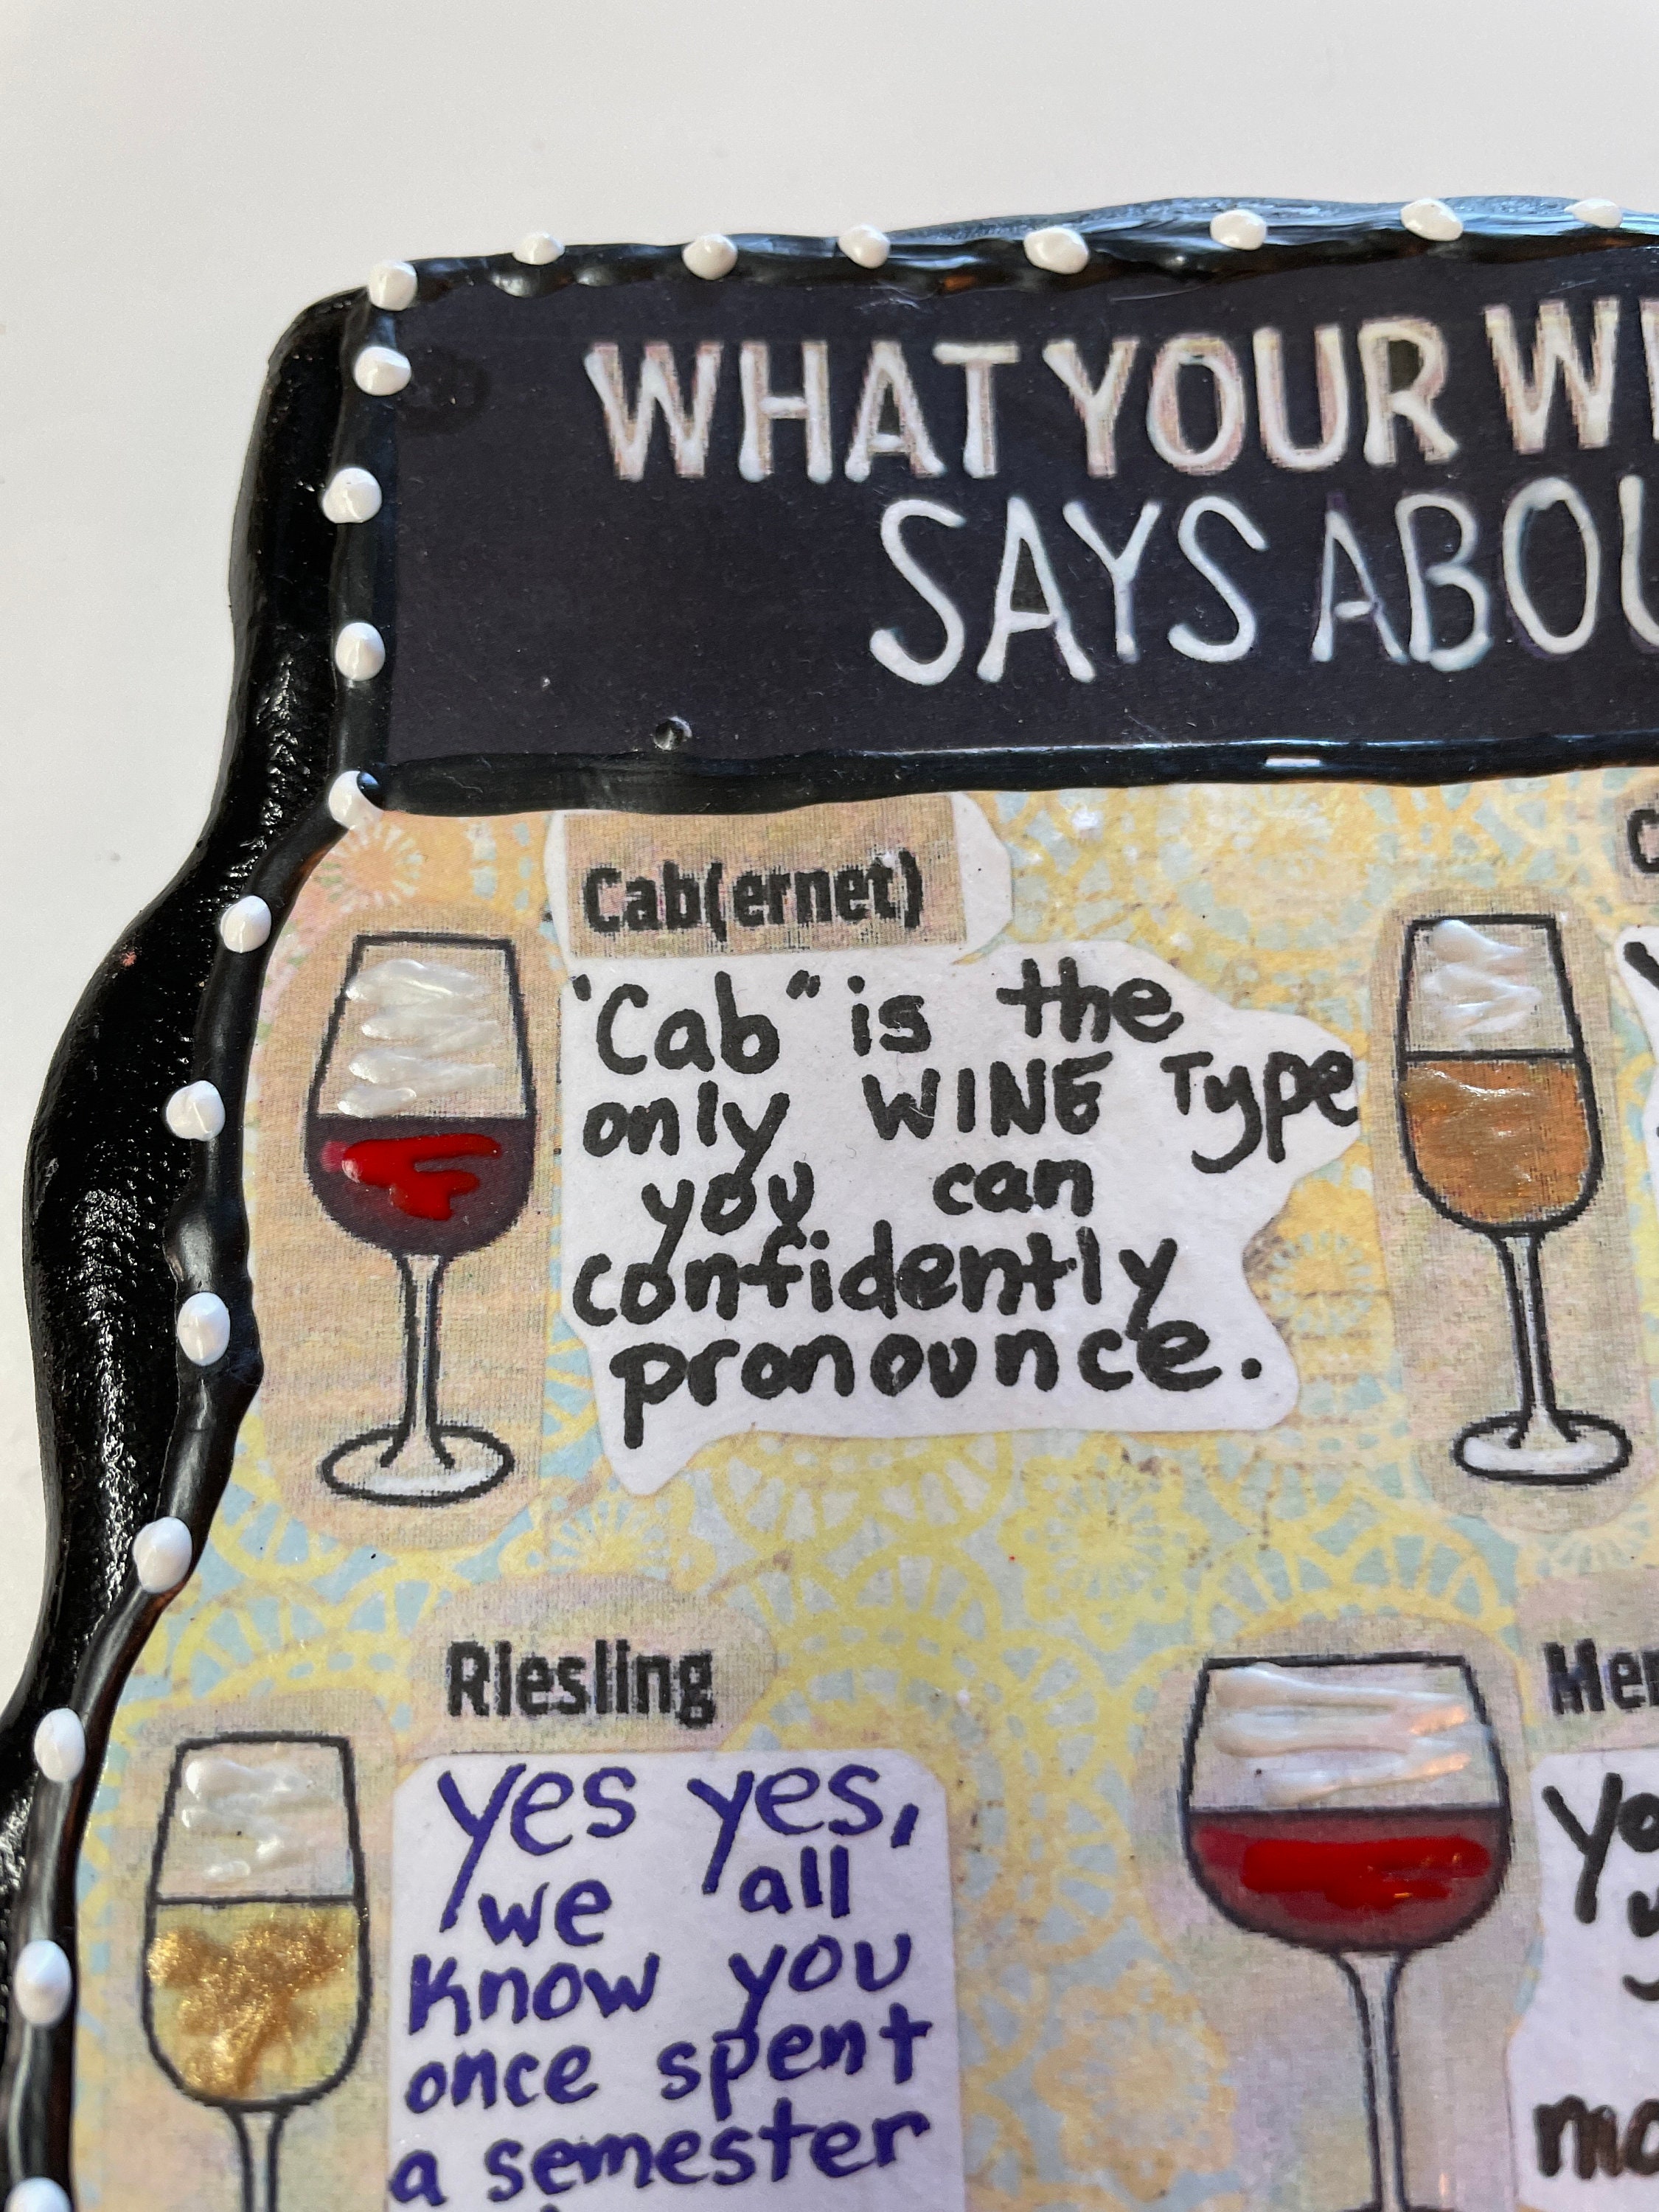 WHAT YOUR
SAYS
Cab(ernet)
"Cab" is the
only WINE Type
you can
confidently
pronounce.
Riesling
yes yes,
we all
know you
once spent
a semester